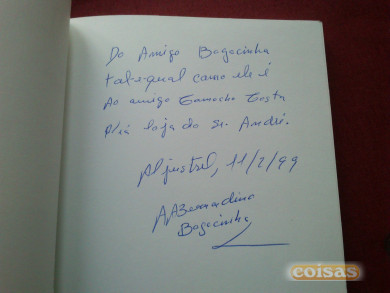 Do Amigo Bogacinha
tal e qual como ele é
Ao amigo Camacho Costa
loja do Sr. André.
Aljustrel, 11/2/99
A A Bernardino
Bogacinha
coisas